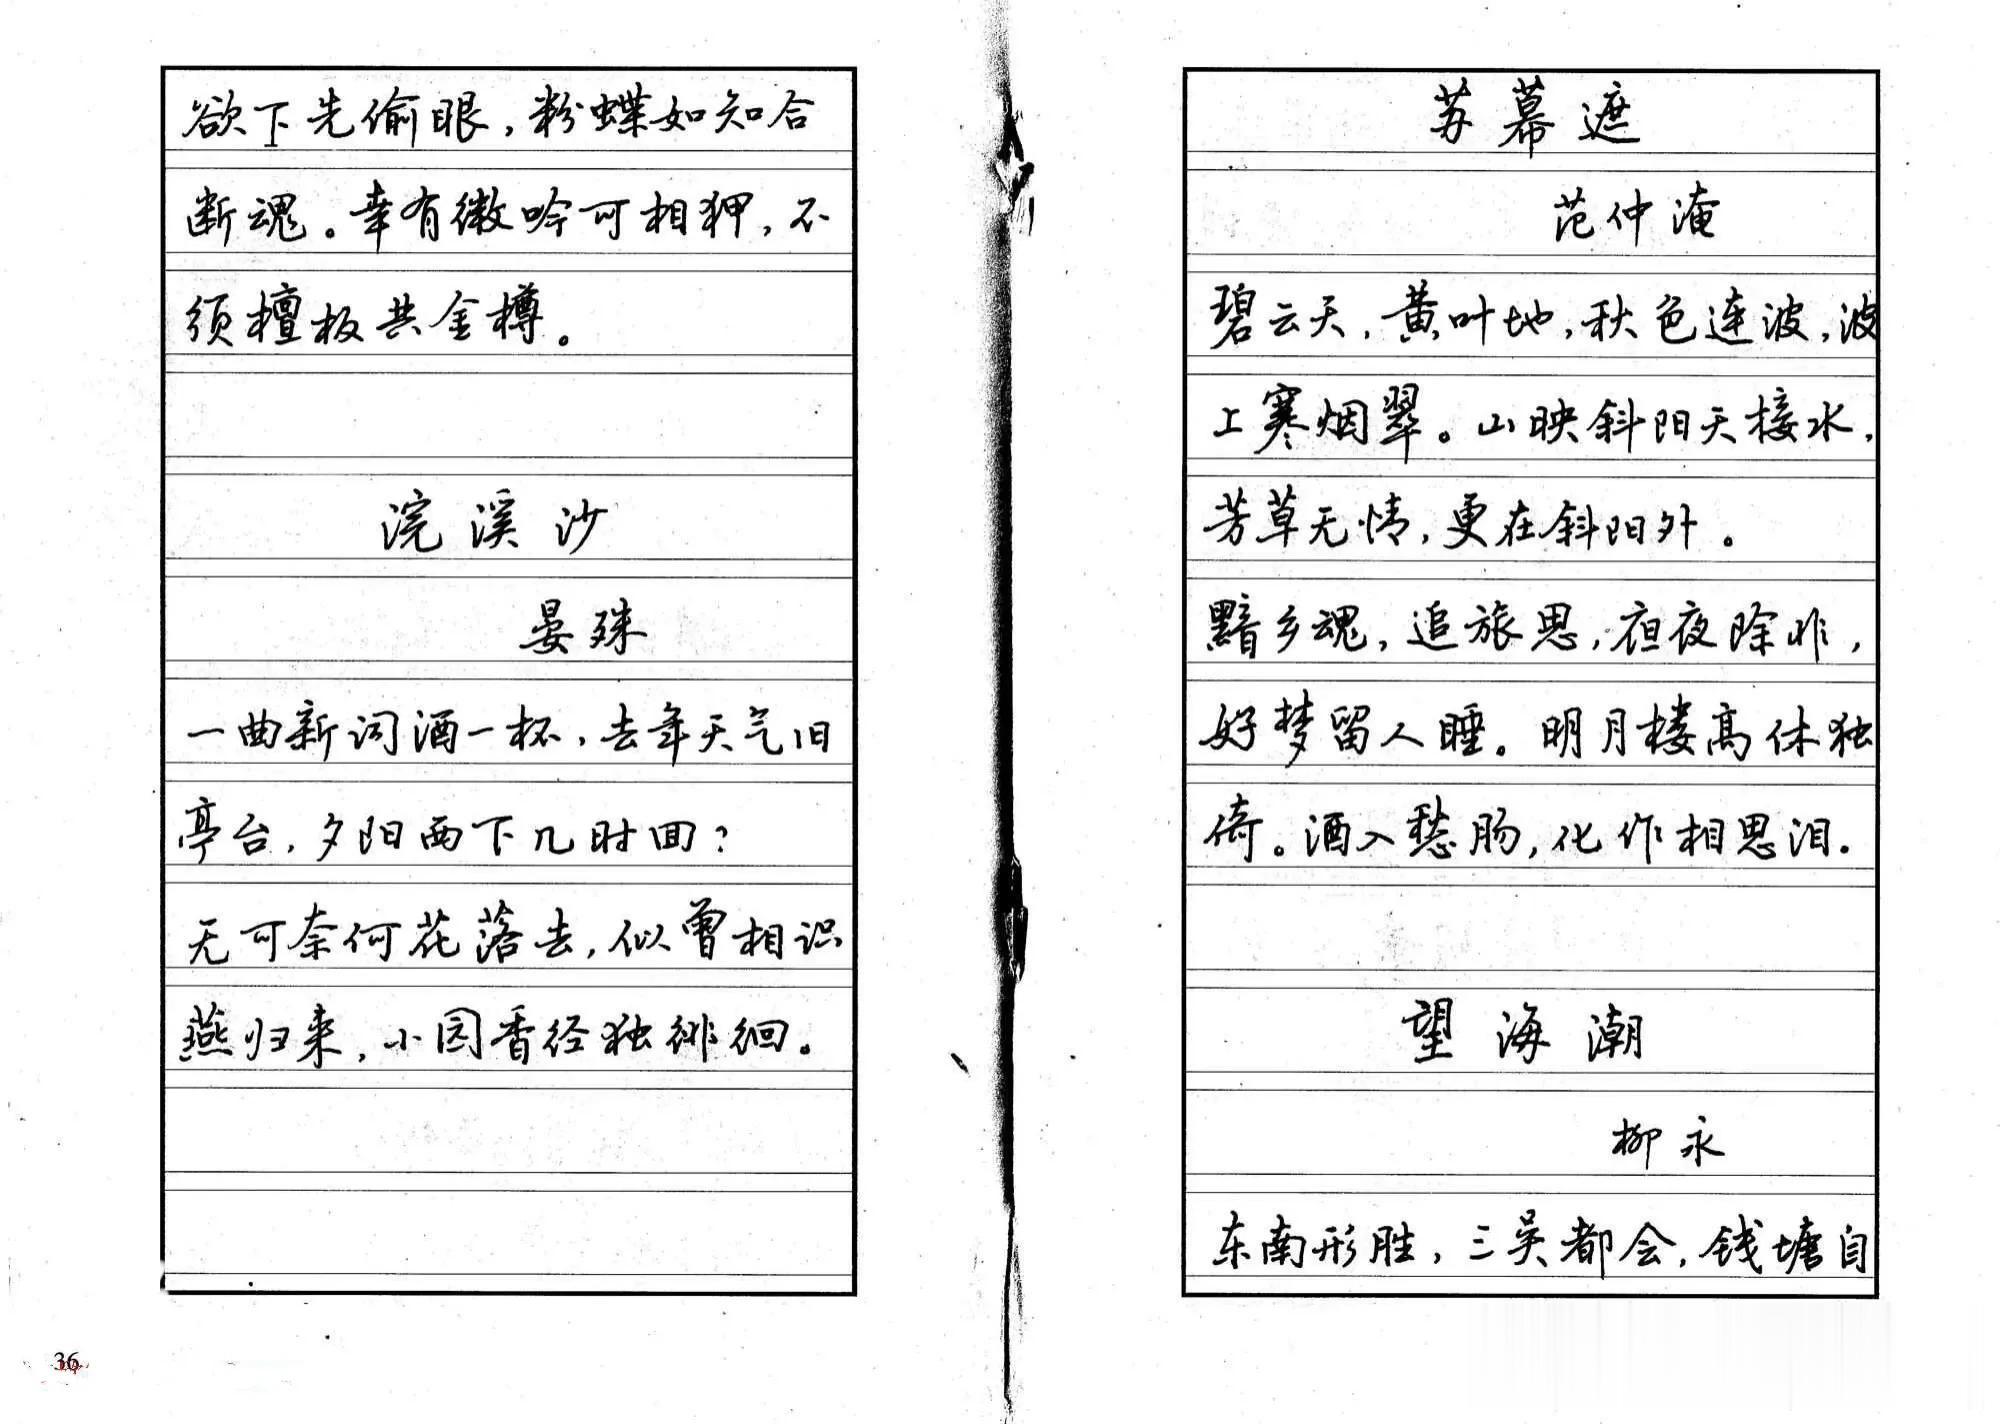 欲下先偷眼，粉蝶如知合
断魂。幸有微吟可相狎，不
须檀板共金樽。
浣溪沙
晏殊
一曲新词酒一杯，去年天气旧
亭台，夕阳西下几时回？
无可奈何花落去，似曾相识
燕归来，小园香径独徘徊。
36
苏幕遮
范仲淹
碧云天，黄叶地，秋色连波，波
上寒烟翠。山映斜阳天接水，
芳草无情，更在斜阳外。
黯乡魂，追旅思，夜夜除非，
好梦留人睡。明月楼高休独
倚。酒入愁肠，化作相思泪.
望海潮
柳永
东南形胜，三吴都会，钱塘自